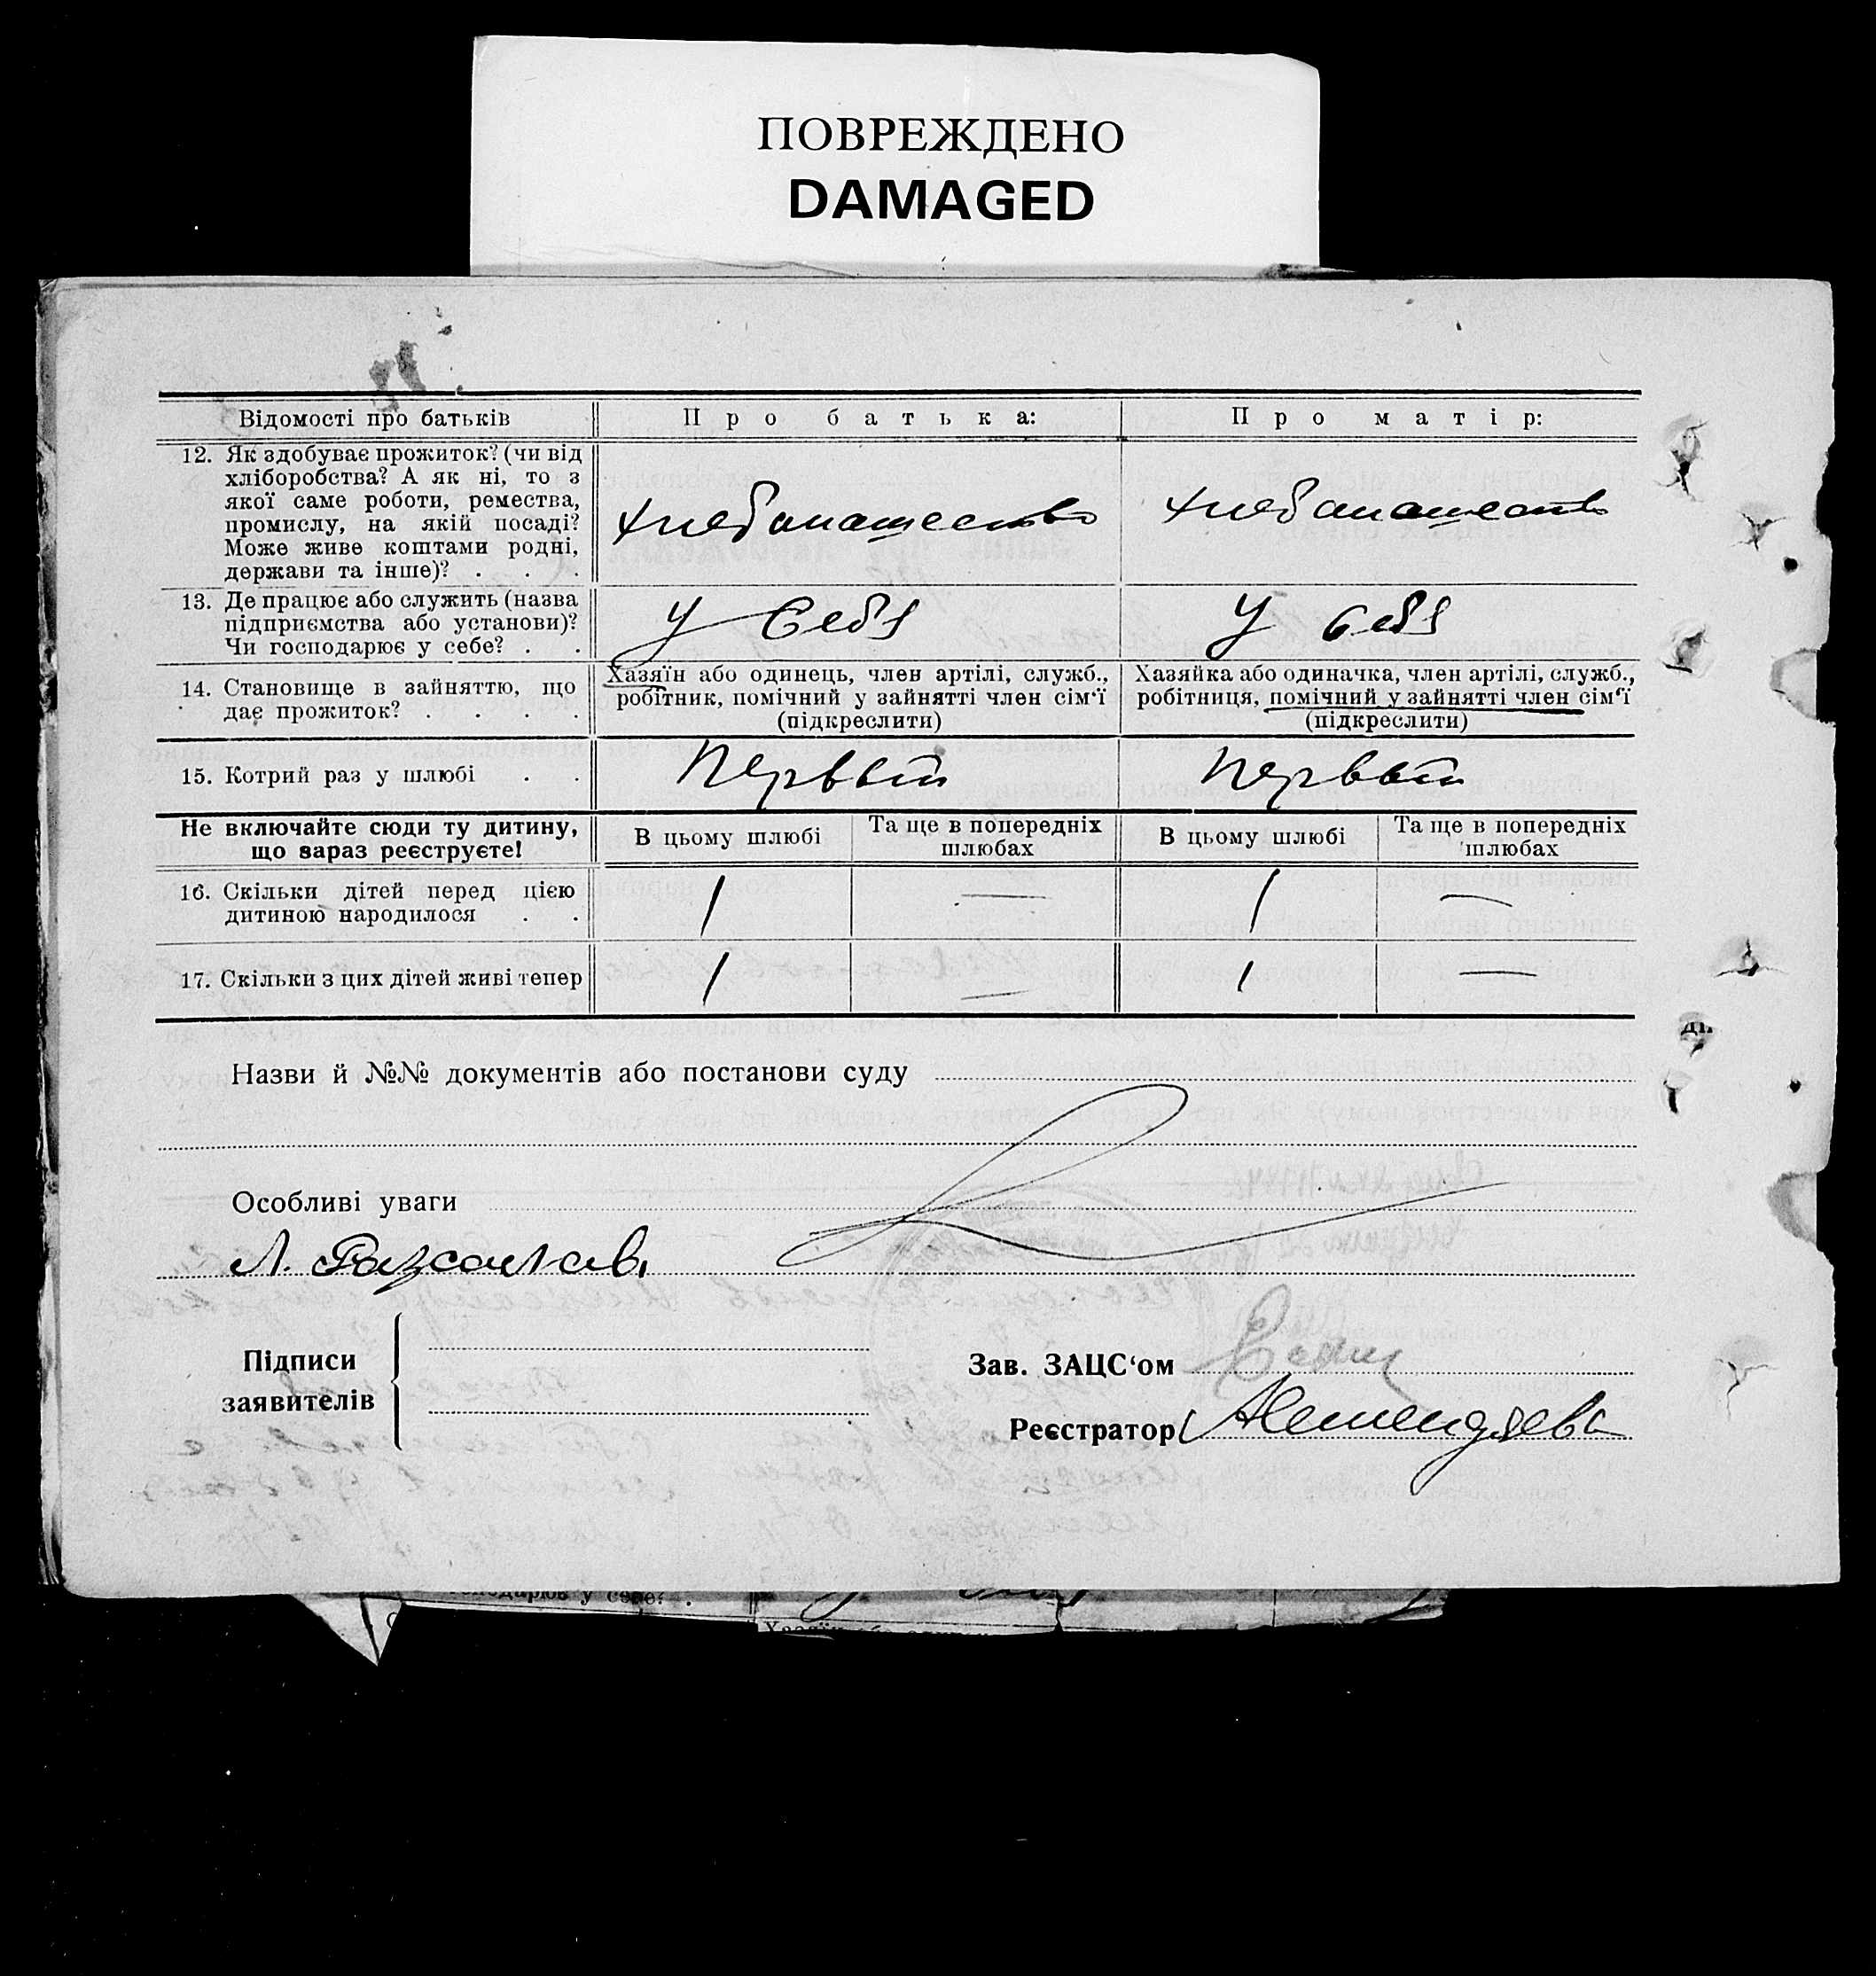 ПОВРЕЖДЕНО
DAMAGED
Відомості про батьків
Про батька:
Про матір:
12. Як здобуває прожиток? (чи від
хліборобства? А як ні, то з
якої саме роботи, ремества,
промислу, на якій посаді?
Може живе коштами родні,
держави та інше)? . . .
хлебопашество
хлебопашество
13. Де працює або служить (назва
підприємства або установи)?
Чи господарює у себе? . .
У себя
У себя
14. Становище в зайняттю, що
дає прожиток? . . . .
Хазяїн або одинець, член артілі, служб.,
робітник, помічний у зайнятті член сім'ї
(підкреслити)
Хазяйка або одиначка, член артілі, служб.,
робітниця, помічний у зайнятті член сім'ї
(підкреслити)
15. Котрий раз у шлюбі . .
Первый
Первый
Не включайте сюди ту дитину,
що зараз реєструєте!
В цьому шлюбі
Та ще в попередніх
шлюбах
В цьому шлюбі
Та ще в попередніх
шлюбах
16. Скільки дітей перед цією
дитиною народилося . .
1 — 1 —
17. Скільки з цих дітей живі тепер
1 — 1 —
Назви й №№ документів або постанови суду
Особливі уваги
Л.
Підписи
заявителів
Зав. ЗАЦС'ом
Реєстратор